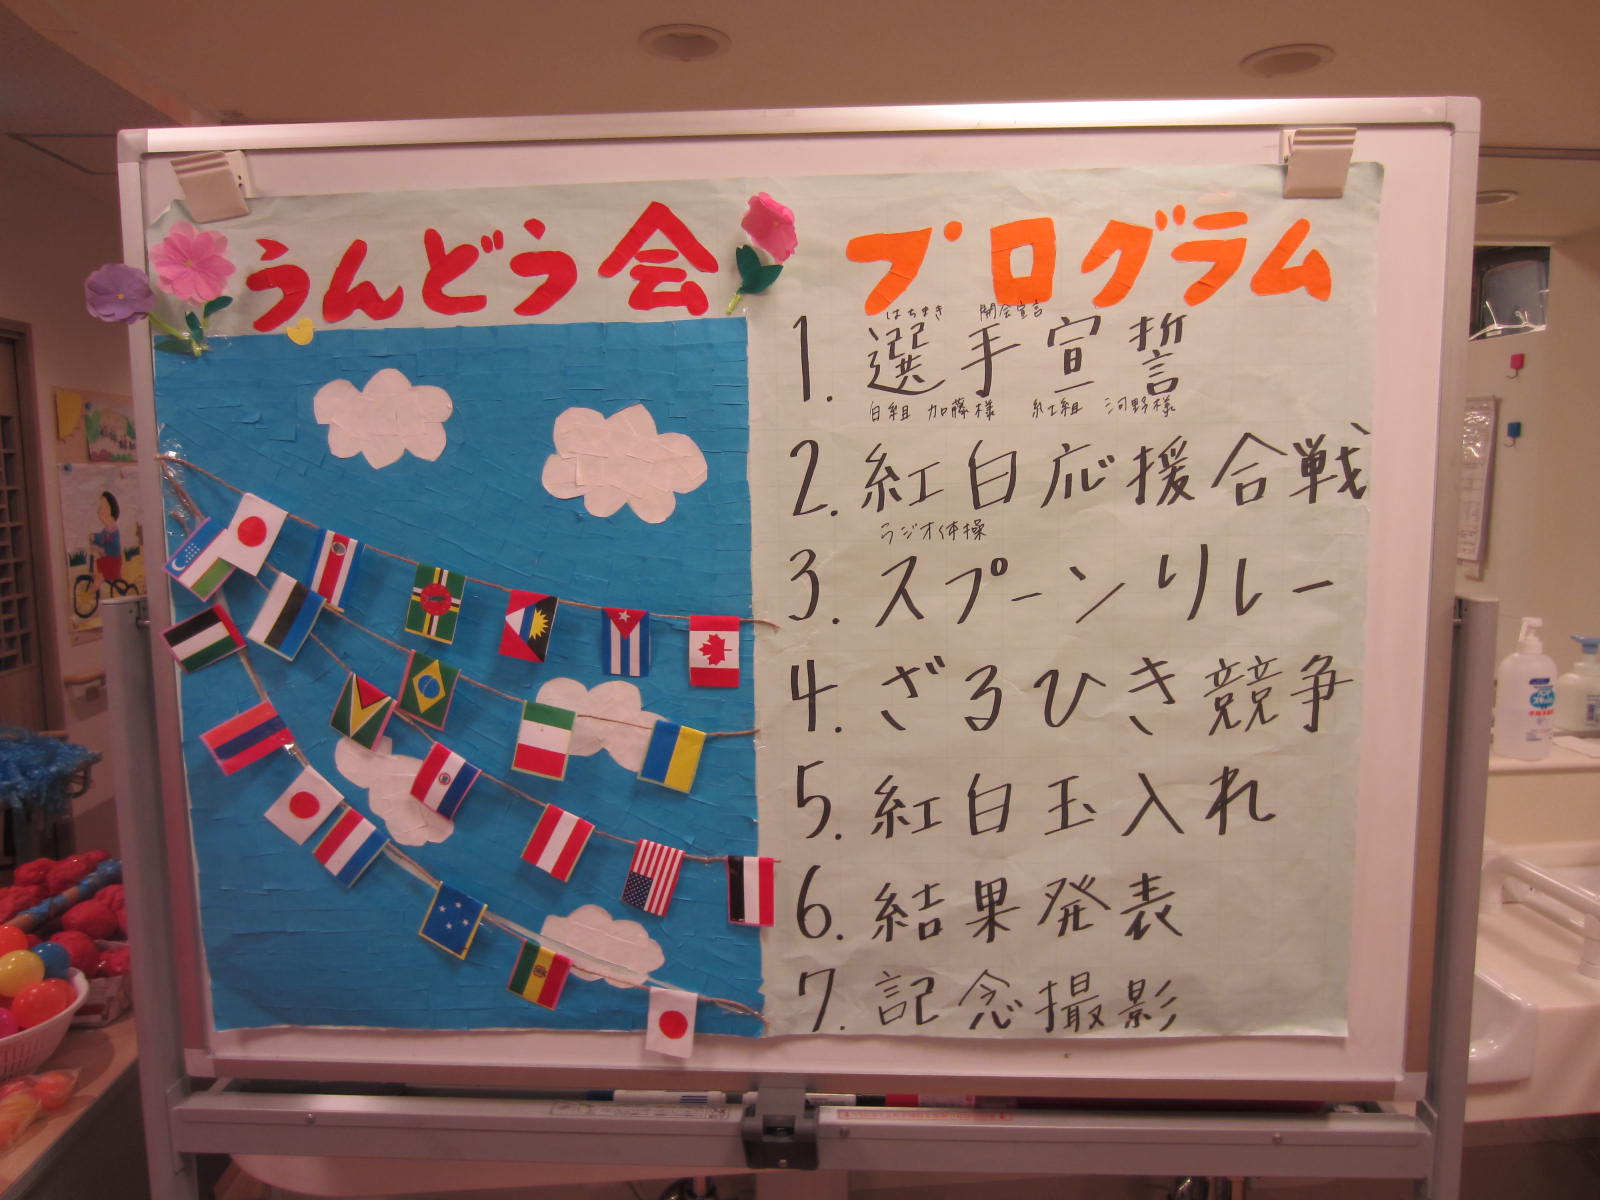 うんどう会 プログラム
はちまき 開会宣言
1. 選手宣誓
白組 加藤様 紅組 河野様
2. 紅白応援合戦
ラジオ体操
3. スプーンリレー
4. ざるひき競争
5. 紅白玉入れ
6. 結果発表
7. 記念撮影